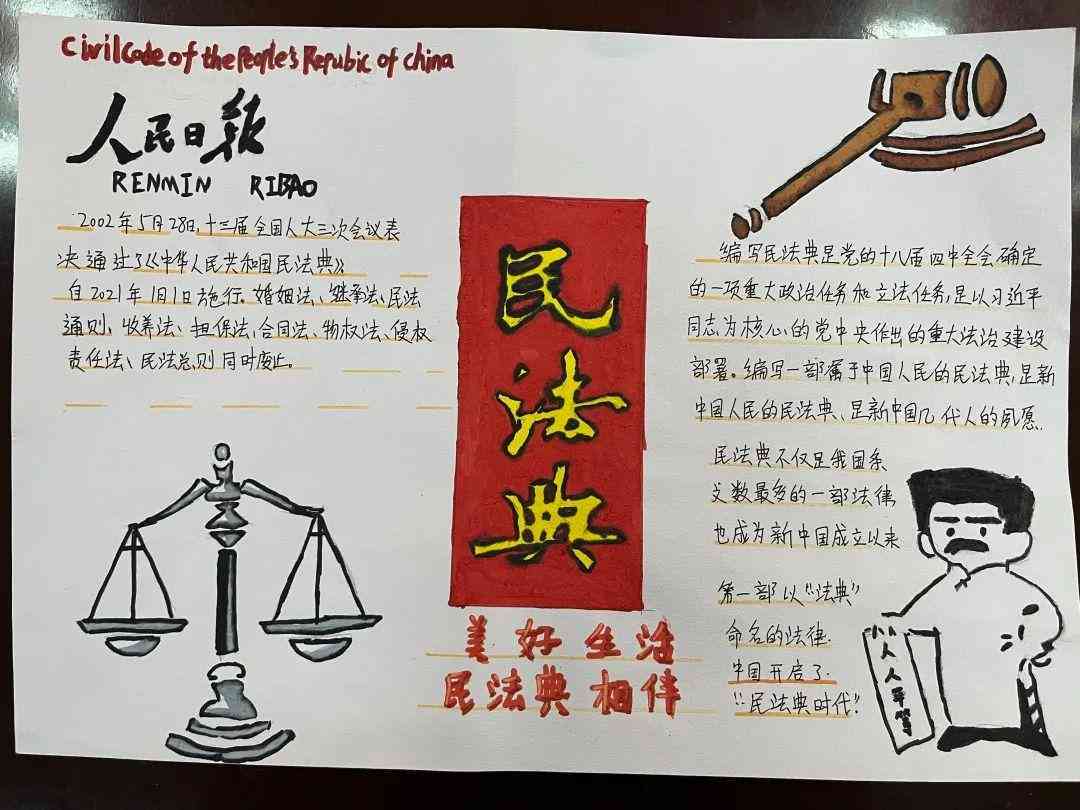 CivilCode of the People's Repubic of china
人民日报
RENMIN RIBAO
2002年5月28日,十三届全国人大三次会议表
决通过了《中华人民共和国民法典》
自2021年1月1日施行。婚姻法、继承法、民法
通则、收养法、担保法,合同法、物权法、侵权
责任法、民法总则同时废止。
民法典
美好生活
民法典相伴
编写民法典是党的十八届四中全会确定
的一项重大政治任务和立法任务,是以习近平
同志为核心的党中央作出的重大法治建设
部署。编写一部属于中国人民的民法典,是新
中国人民的民法典、是新中国几代人的夙愿.
民法典不仅是我国条
文数最多的一部法律
也成为新中国成立以来
第一部以“法典”
命名的法律.
中国开启了.
“民法典时代”
人人平等